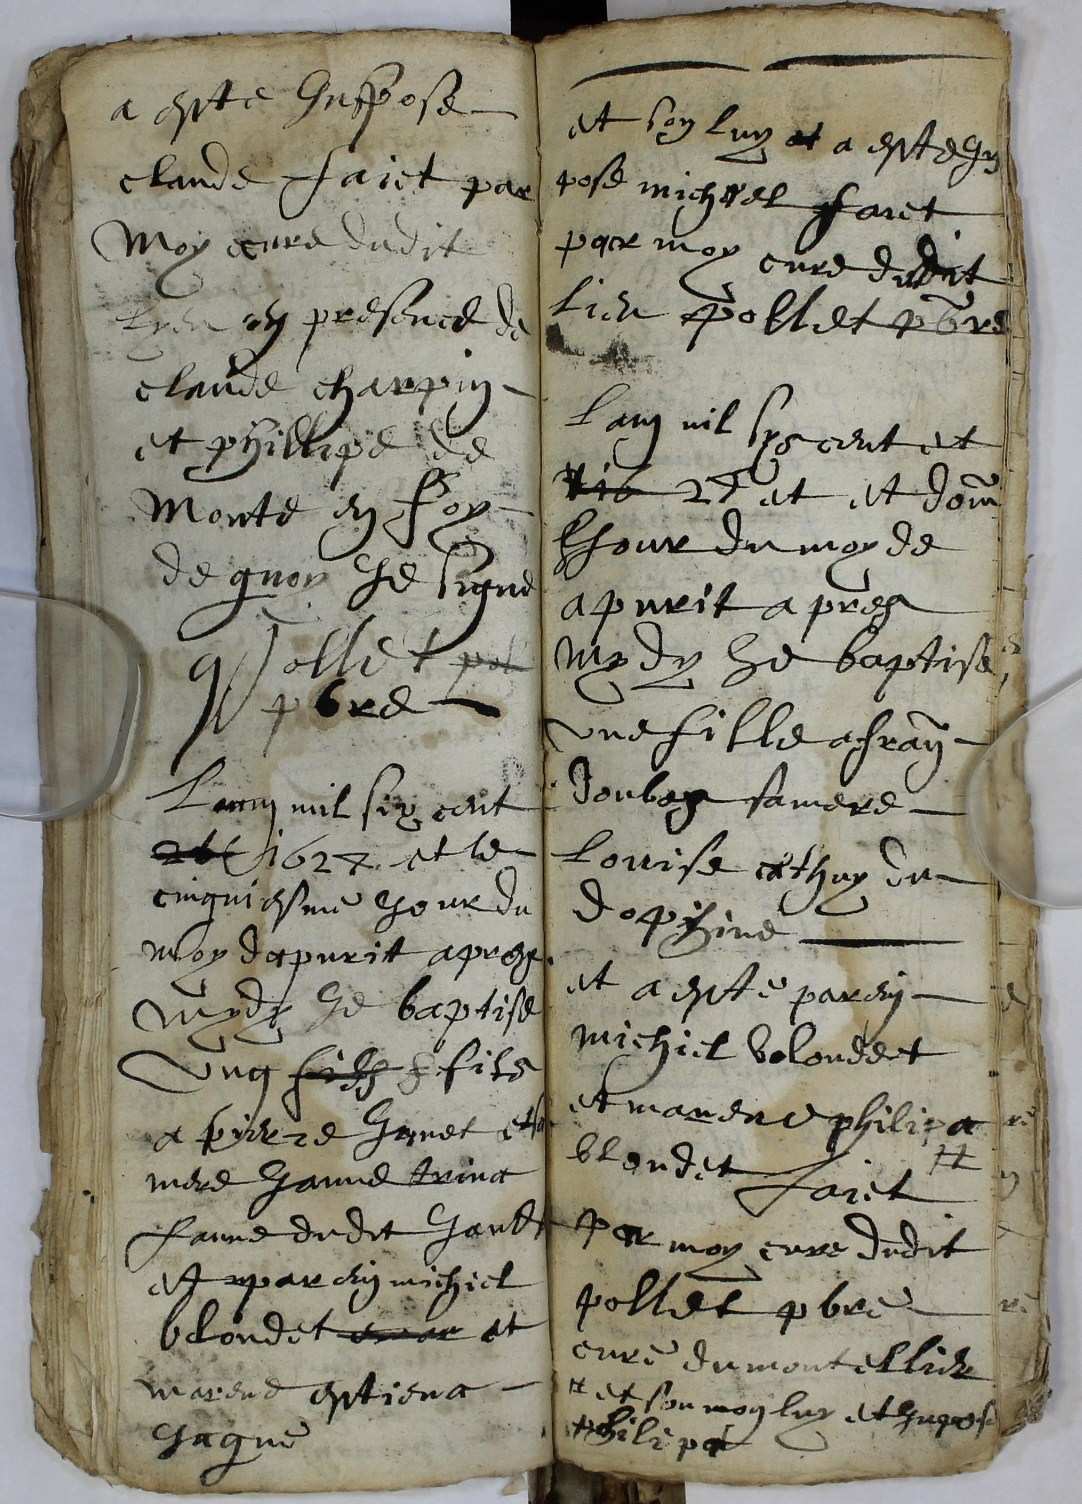 a este Inpose
claude faict par
Moy cure dudit
lieu en presence de
claude charpin
et phillipe de
Monte en foy
de quoy Je signe
Pollet
pbre
Lan mil six cent
1627 et le
cinquiesme Jour du
moy dapvrit apres
mydy Je baptise
ung fils
a pierre Janet et sa
mere Janne
fame dudit
et parein michiel
blondet et
marene estiena
Jaque
et son luy a este In
pose michiel faict
par moy cure dudit
lieu pollet pbre
Lan mil sys cent et
27 et et dom
Jour du moy de
apvrit apres
mydy Je baptise
une fille a fran
sa mere
Louise du
dophine
et a este parein
michiel blondet
et marene philipa
blondet faict
par moy cure dudit
pollet pbre
cure du montellier
et son luy et Inpose
philipa